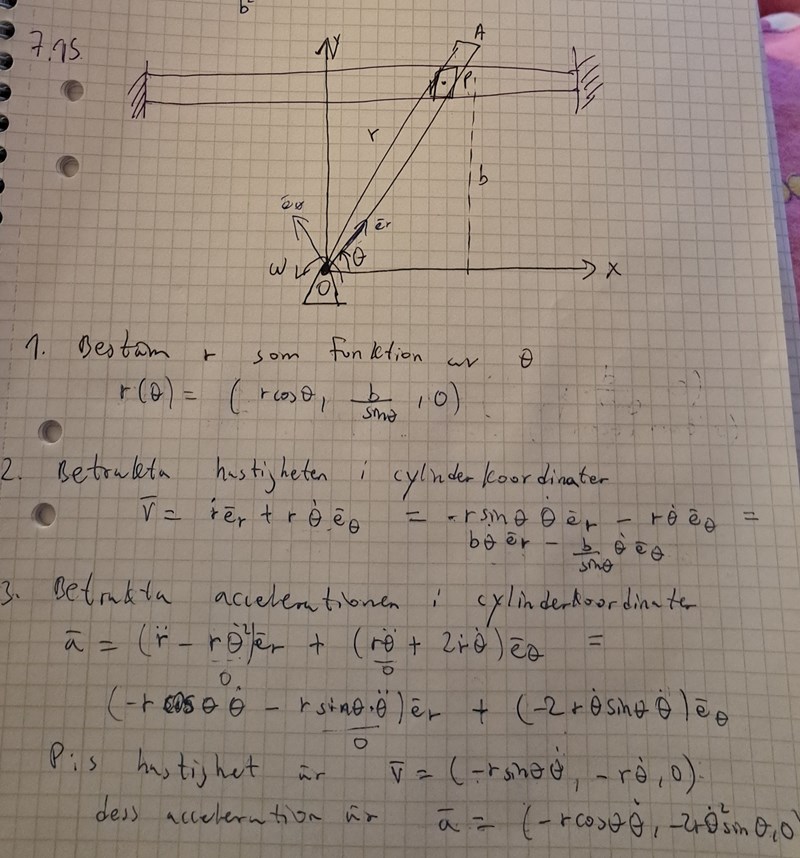 b
7.15
y
A
P
r
b
ēθ
ēr
ω
θ
O
x
1. Bestäm r som funktion av θ
r(θ) = (rcosθ, b/sinθ, 0)
2. Betrakta hastigheten i cylinderkoordinater
v̄ = ṙēr + rθ̇ēθ = -rsinθ θ̇ ēr - rθ̇ ēθ =
bθ̇ ēr - b/sinθ θ̇ ēθ
3. Betrakta accelerationen i cylinderkoordinater
ā = (r̈ - rθ̇²)ēr + (rθ̈ + 2ṙθ̇)ēθ =
0 0
(-r cosθ θ̇ - rsinθ·θ̈)ēr + (-2rθ̇sinθ θ̇)ēθ
0
P:s hastighet är v̄ = (-rsinθ θ̇, -rθ̇, 0).
dess acceleration är ā = (-rcosθ θ̇, -2rθ̇²sinθ, 0